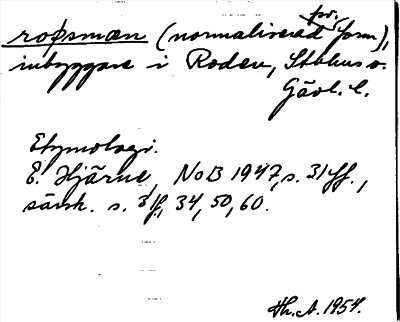 fv.
ropsmæn (normaliserad form),
inbyggare i Roden, Sthlms o.
Gävl. l.
Etymologi.
E. Hjärne, NoB 1947, s. 31 ff.,
särsk. s. 31 f., 34, 50, 60.
Th. A. 1954.